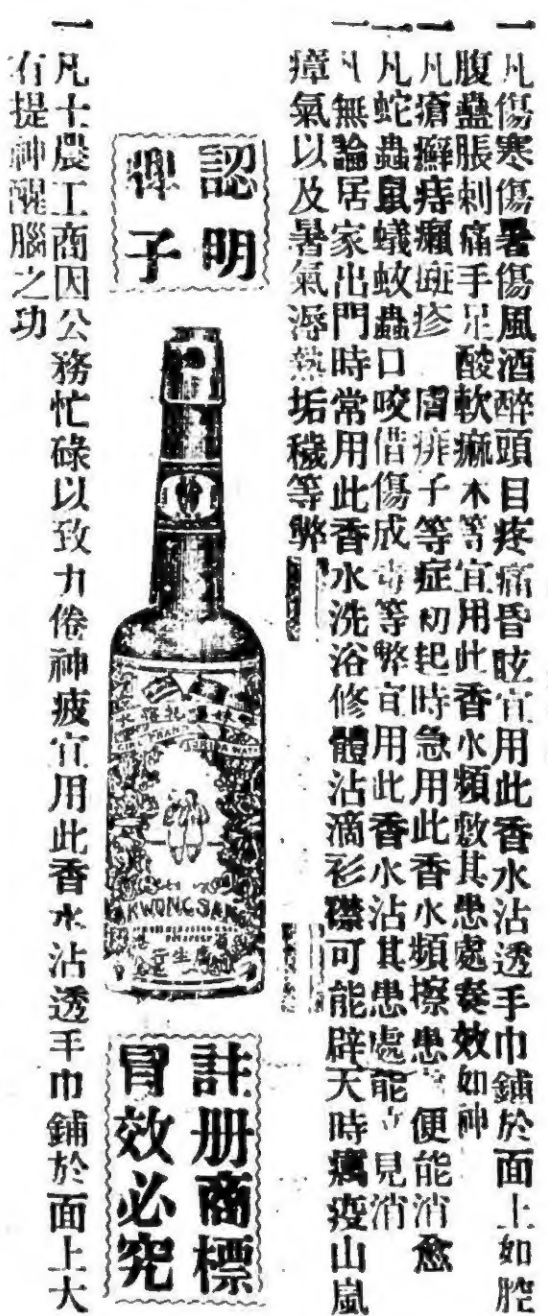 一凡傷寒傷暑傷風酒醉頭目疼痛昏眩宜用此香水沾透手巾鋪於面上如腔
腹蠱脹刺痛手足酸軟痲木等宜用此香水頻敷其患處奏效如神
一凡瘡癬痔癩斑疹 膚疿子等症初起時急用此香水頻擦患 便能消愈
凡蛇蟲鼠蟻蚊蟲口咬借傷成毒等弊宜用此香水沾其患處能立見消
一凡無論居家出門時常用此香水洗浴修體沾滴衫襟可能辟天時癘疫山嵐
瘴氣以及暑氣溽熱垢穢等弊
認明
子
KWONG SAN
註册商標
冒效必究
一凡士農工商因公務忙碌以致力倦神疲宜用此香水沾透手巾鋪於面上大
有提神醒腦之功